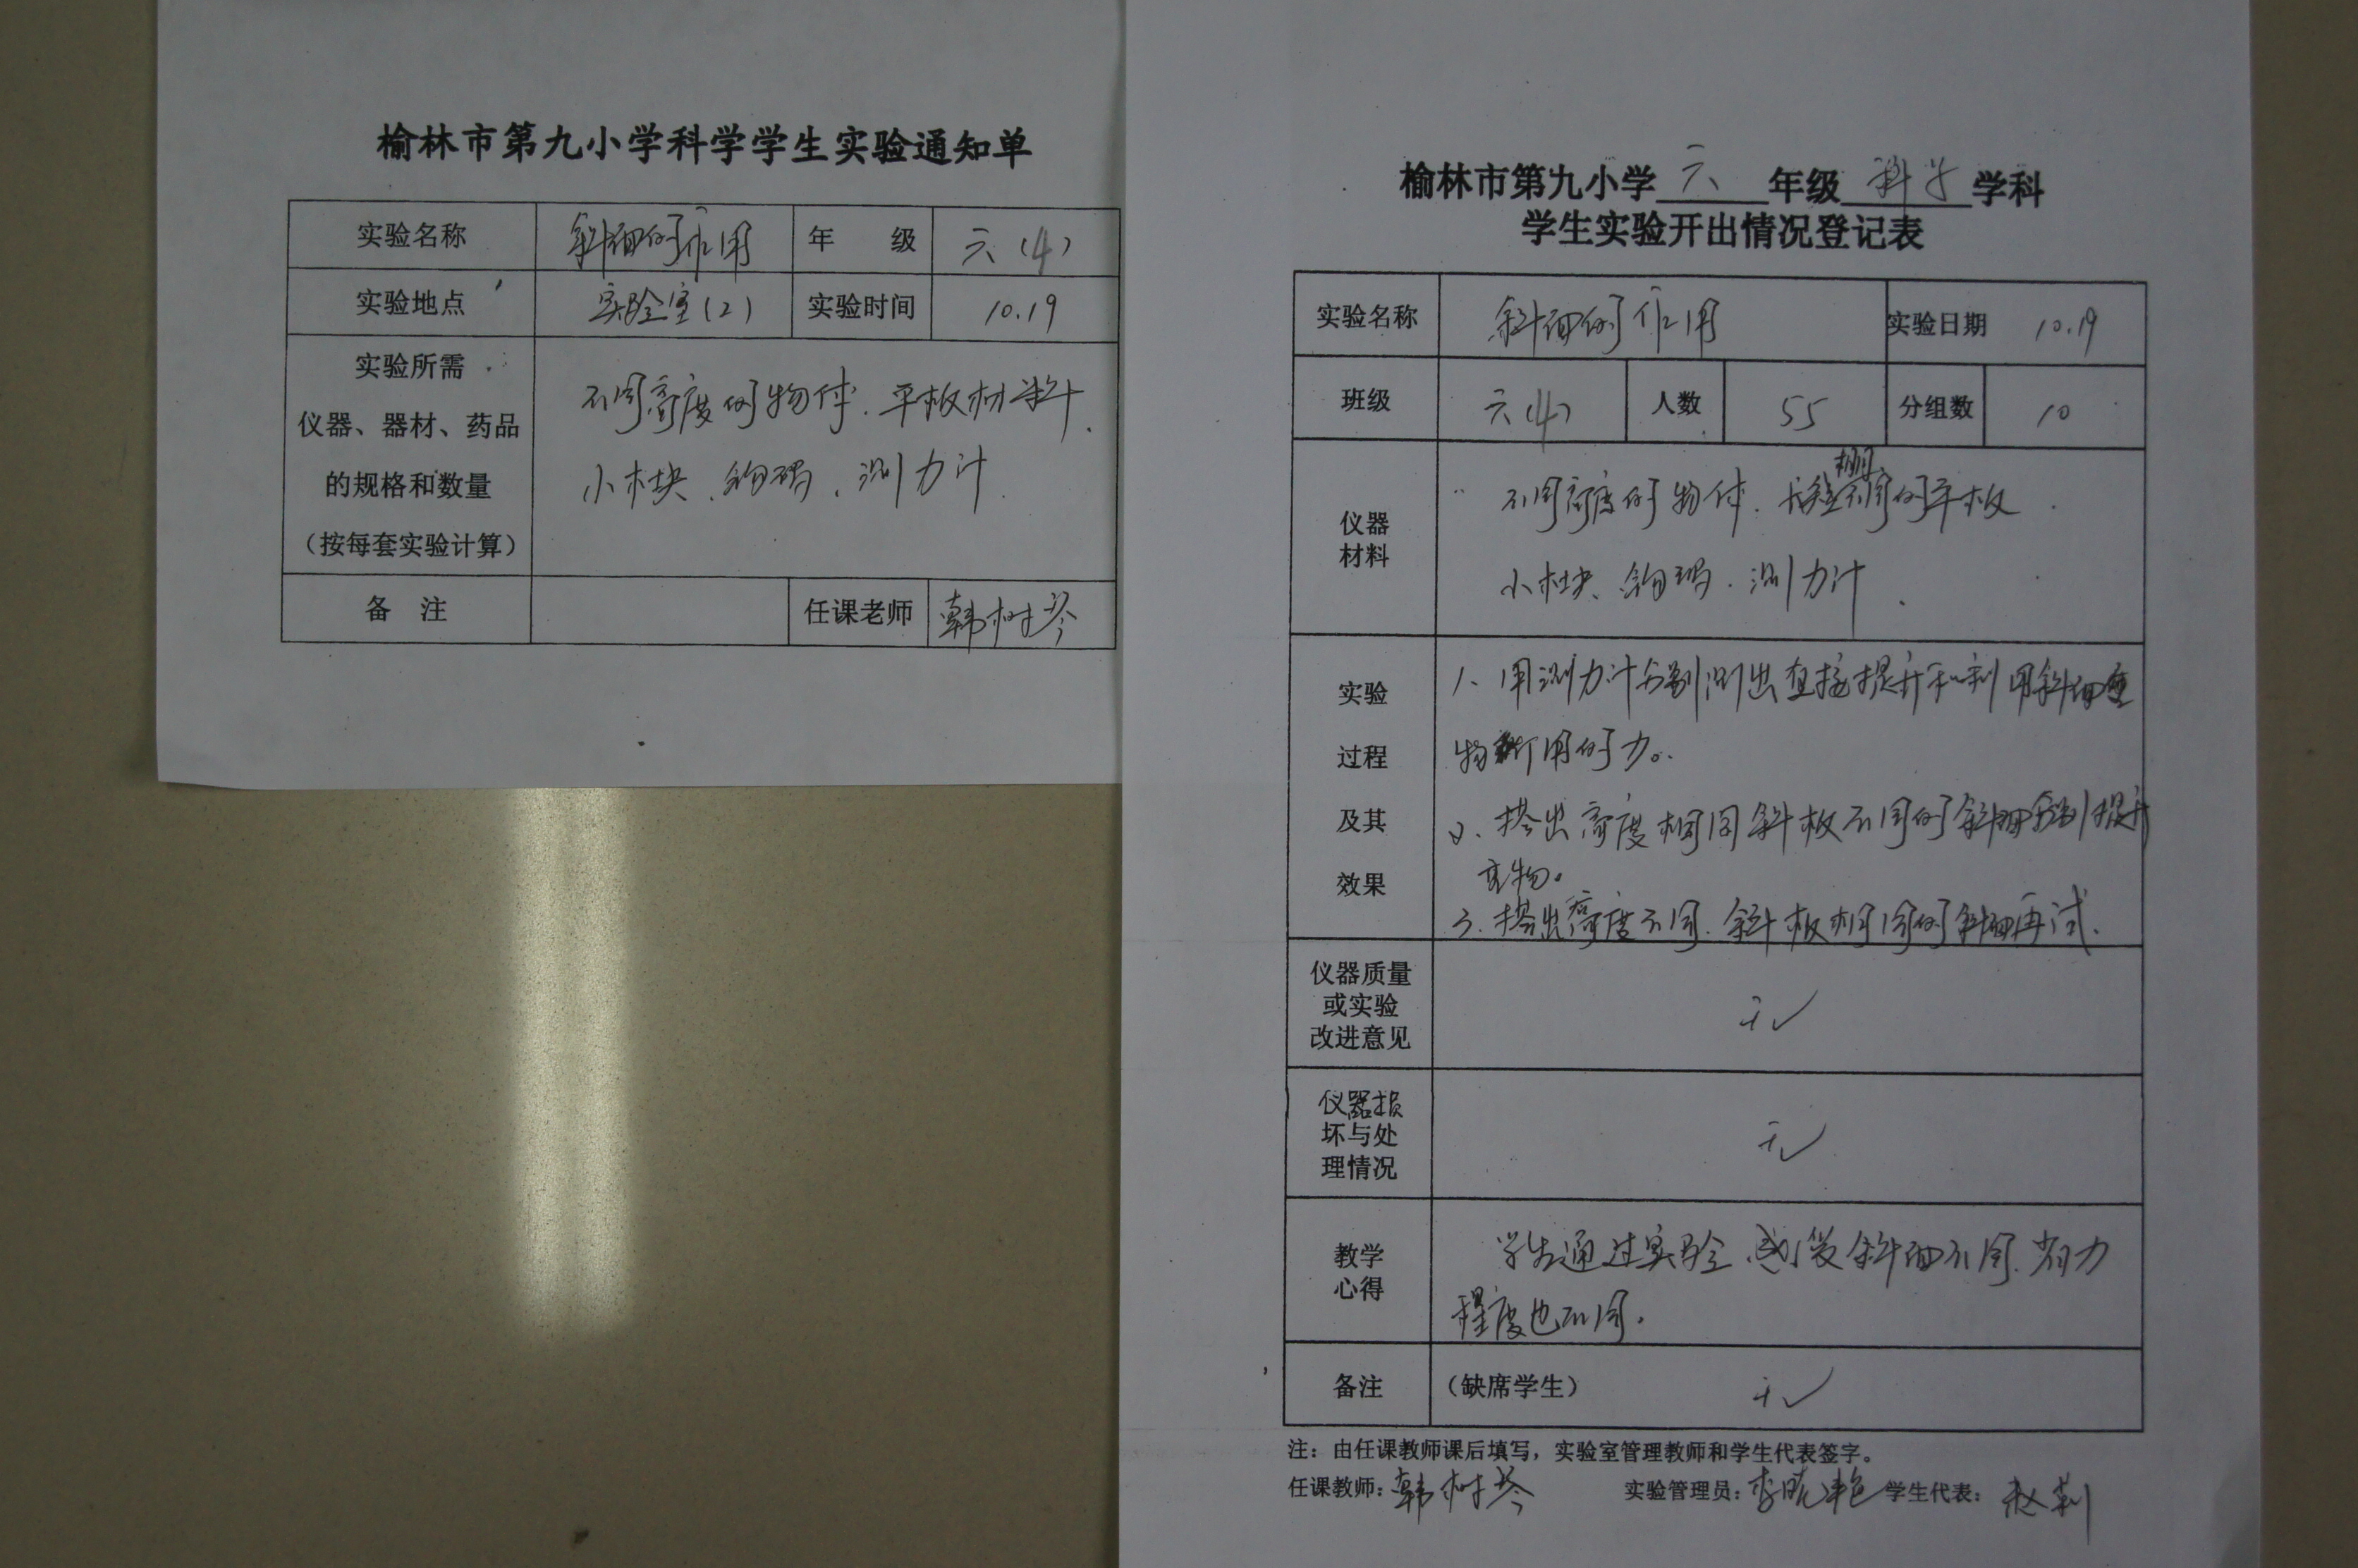 榆林市第九小学科学学生实验通知单
实验名称 斜面的作用 年 级 六(4)
实验地点 实验室(2) 实验时间 10.19
实验所需
仪器、器材、药品
的规格和数量
(按每套实验计算)
不同高度的物体、平板材料、
小木块、钩码、测力计
备 注 任课老师 韩树琴
榆林市第九小学 六 年级 科学 学科
学生实验开出情况登记表
实验名称 斜面的作用 实验日期 10.19
班级 六(4) 人数 55 分组数 10
仪器
材料
不同高度的物体、 的平板
小木块、钩码、测力计
实验
过程
及其
效果
1、用测力计分别测出直接提升和利用斜面
物 所用的力。
2、搭出高度相同斜板不同的斜面分别提升
重物。
3、搭出高度不同、斜板相同的斜面再试.
仪器质量
或实验
改进意见
无
仪器损
坏与处
理情况
无
教学
心得
学生通过实验, 斜面不同,省力
程度也不同。
备注 (缺席学生) 无
注:由任课教师课后填写,实验室管理教师和学生代表签字。
任课教师:韩树琴 实验管理员:李晓艳 学生代表:赵